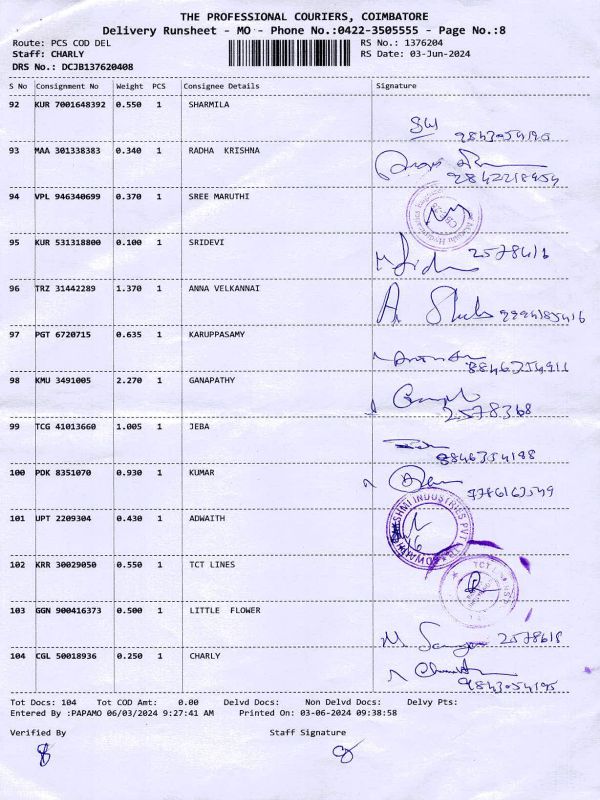 THE PROFESSIONAL COURIERS, COIMBATORE
Delivery Runsheet - MO - Phone No.:0422-3505555 - Page No.:8
Route: PCS COD DEL RS No.: 1376204
Staff: CHARLY RS Date: 03-Jun-2024
DRS No.: DCJB137620408
S No Consignment No Weight PCS Consignee Details Signature
92 KUR 7001648392 0.550 1 SHARMILA
9843054195
93 MAA 301338383 0.340 1 RADHA KRISHNA
9842218954
94 VPL 946340699 0.370 1 SREE MARUTHI
95 KUR 531318800 0.100 1 SRIDEVI
2578416
96 TRZ 31442289 1.370 1 ANNA VELKANNAI
97 PGT 6720715 0.635 1 KARUPPASAMY
98 KMU 3491005 2.270 1 GANAPATHY
2578368
99 TCG 41013660 1.005 1 JEBA
100 PDK 8351070 0.930 1 KUMAR
101 UPT 2209304 0.430 1 ADWAITH
INDUSTRIES PVT
102 KRR 30029050 0.550 1 TCT LINES
TCT
103 GGN 900416373 0.500 1 LITTLE FLOWER
2578618
104 CGL 50018936 0.250 1 CHARLY
9843054195
Tot Docs: 104 Tot COD Amt: 0.00 Delvd Docs: Non Delvd Docs: Delvy Pts:
Entered By :PAPAMO 06/03/2024 9:27:41 AM Printed On: 03-06-2024 09:38:58
Verified By Staff Signature